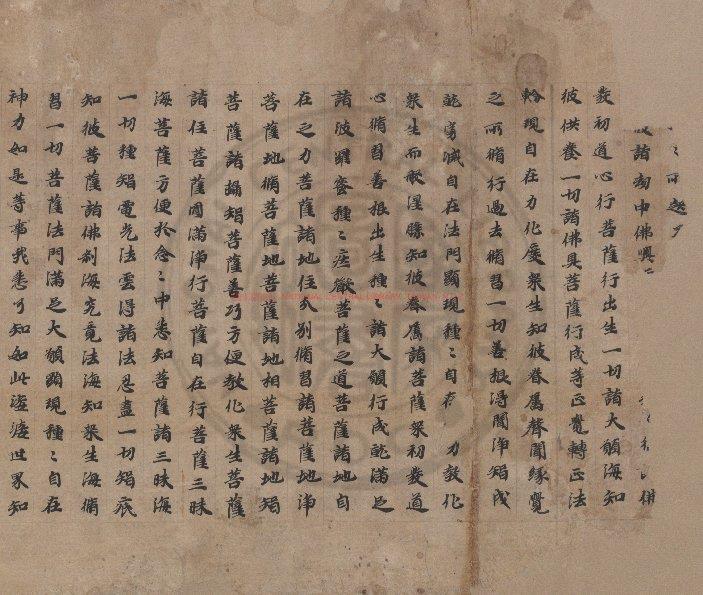 諸劫中佛興
發初道心行菩薩行出生一切諸大願海知
彼供養一切諸佛具菩薩行成等正覺轉正法
輪現自在力化度衆生知彼眷属聲聞緣覺
之所脩行過去脩習一切善根得聞淨智成
就勇滅自在法門顯現種〻自在力教化
衆生而般涅槃知彼眷属諸菩薩衆初發道
心脩習善根出生種〻諸大願行成就滿足
諸波羅蜜種〻莊嚴菩薩之道菩薩諸地自
在之力菩薩諸地住分別脩習諸菩薩地淨
菩薩地脩菩薩地菩薩諸地相菩薩諸地智
菩薩諸攝智菩薩善巧方便教化衆生菩薩
諸住菩薩圓滿淨行菩薩自在行菩薩三昧
海菩薩方便於念〻中悉知菩薩諸三昧海
一切種智電光法雲得諸法忍盡一切智底
知彼菩薩諸佛刹海究竟法海知衆生海脩
習一切菩薩法門滿足大願顯現種〻自在
神力如是等事我悉了知如此娑婆世界知